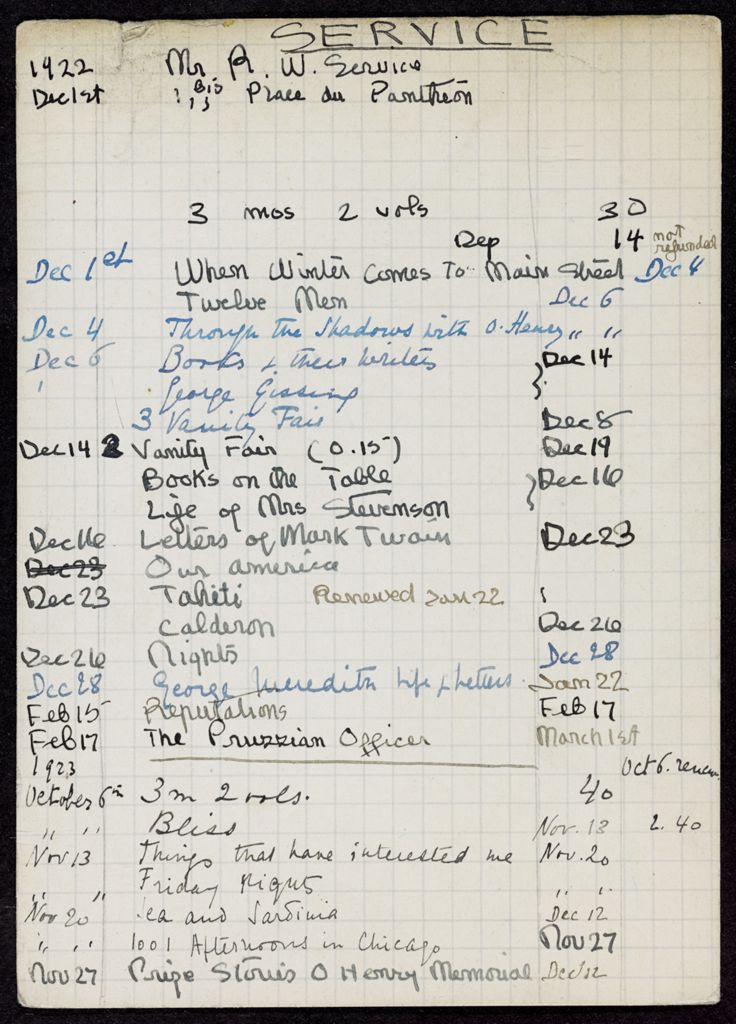 SERVICE
1922 Mr R. W. Service
Dec 1st Place du Panthéon
3 mos 2 vols 30
Dep 14 not refunded
Dec 1st When Winter Comes To Main Street Dec 4
Twelve Men Dec 6
Dec 4 Through the Shadows with O. Henry " "
Dec 6 Books & their writers } Dec 14
George Gissing
3 Vanity Fair Dec 8
Dec 14 2 Vanity Fair (0.15) Dec 19
Books on the Table } Dec 16
Life of Mrs Stevenson
Dec 16 Letters of Mark Twain Dec 23
Dec 23 Our america
Dec 23 Tahiti Renewed Jan 22
Calderon Dec 26
Dec 26 Nights Dec 28
Dec 28 George Meredith Life & Letters Jan 22
Feb 15 Reputations Feb 17
Feb 17 The Pruzzian Officer March 1st
1923 Oct 6.
October 6th 3 m 2 vols. 40
" " Bliss Nov. 13 2.40
Nov 13 Things that have interested me Nov. 20
" " Friday Nights " "
Nov 20 Sea and Sardinia Dec 12
" " 1001 Afternoons in Chicago Nov 27
Nov 27 Prize Stories O Henry Memorial Dec 12